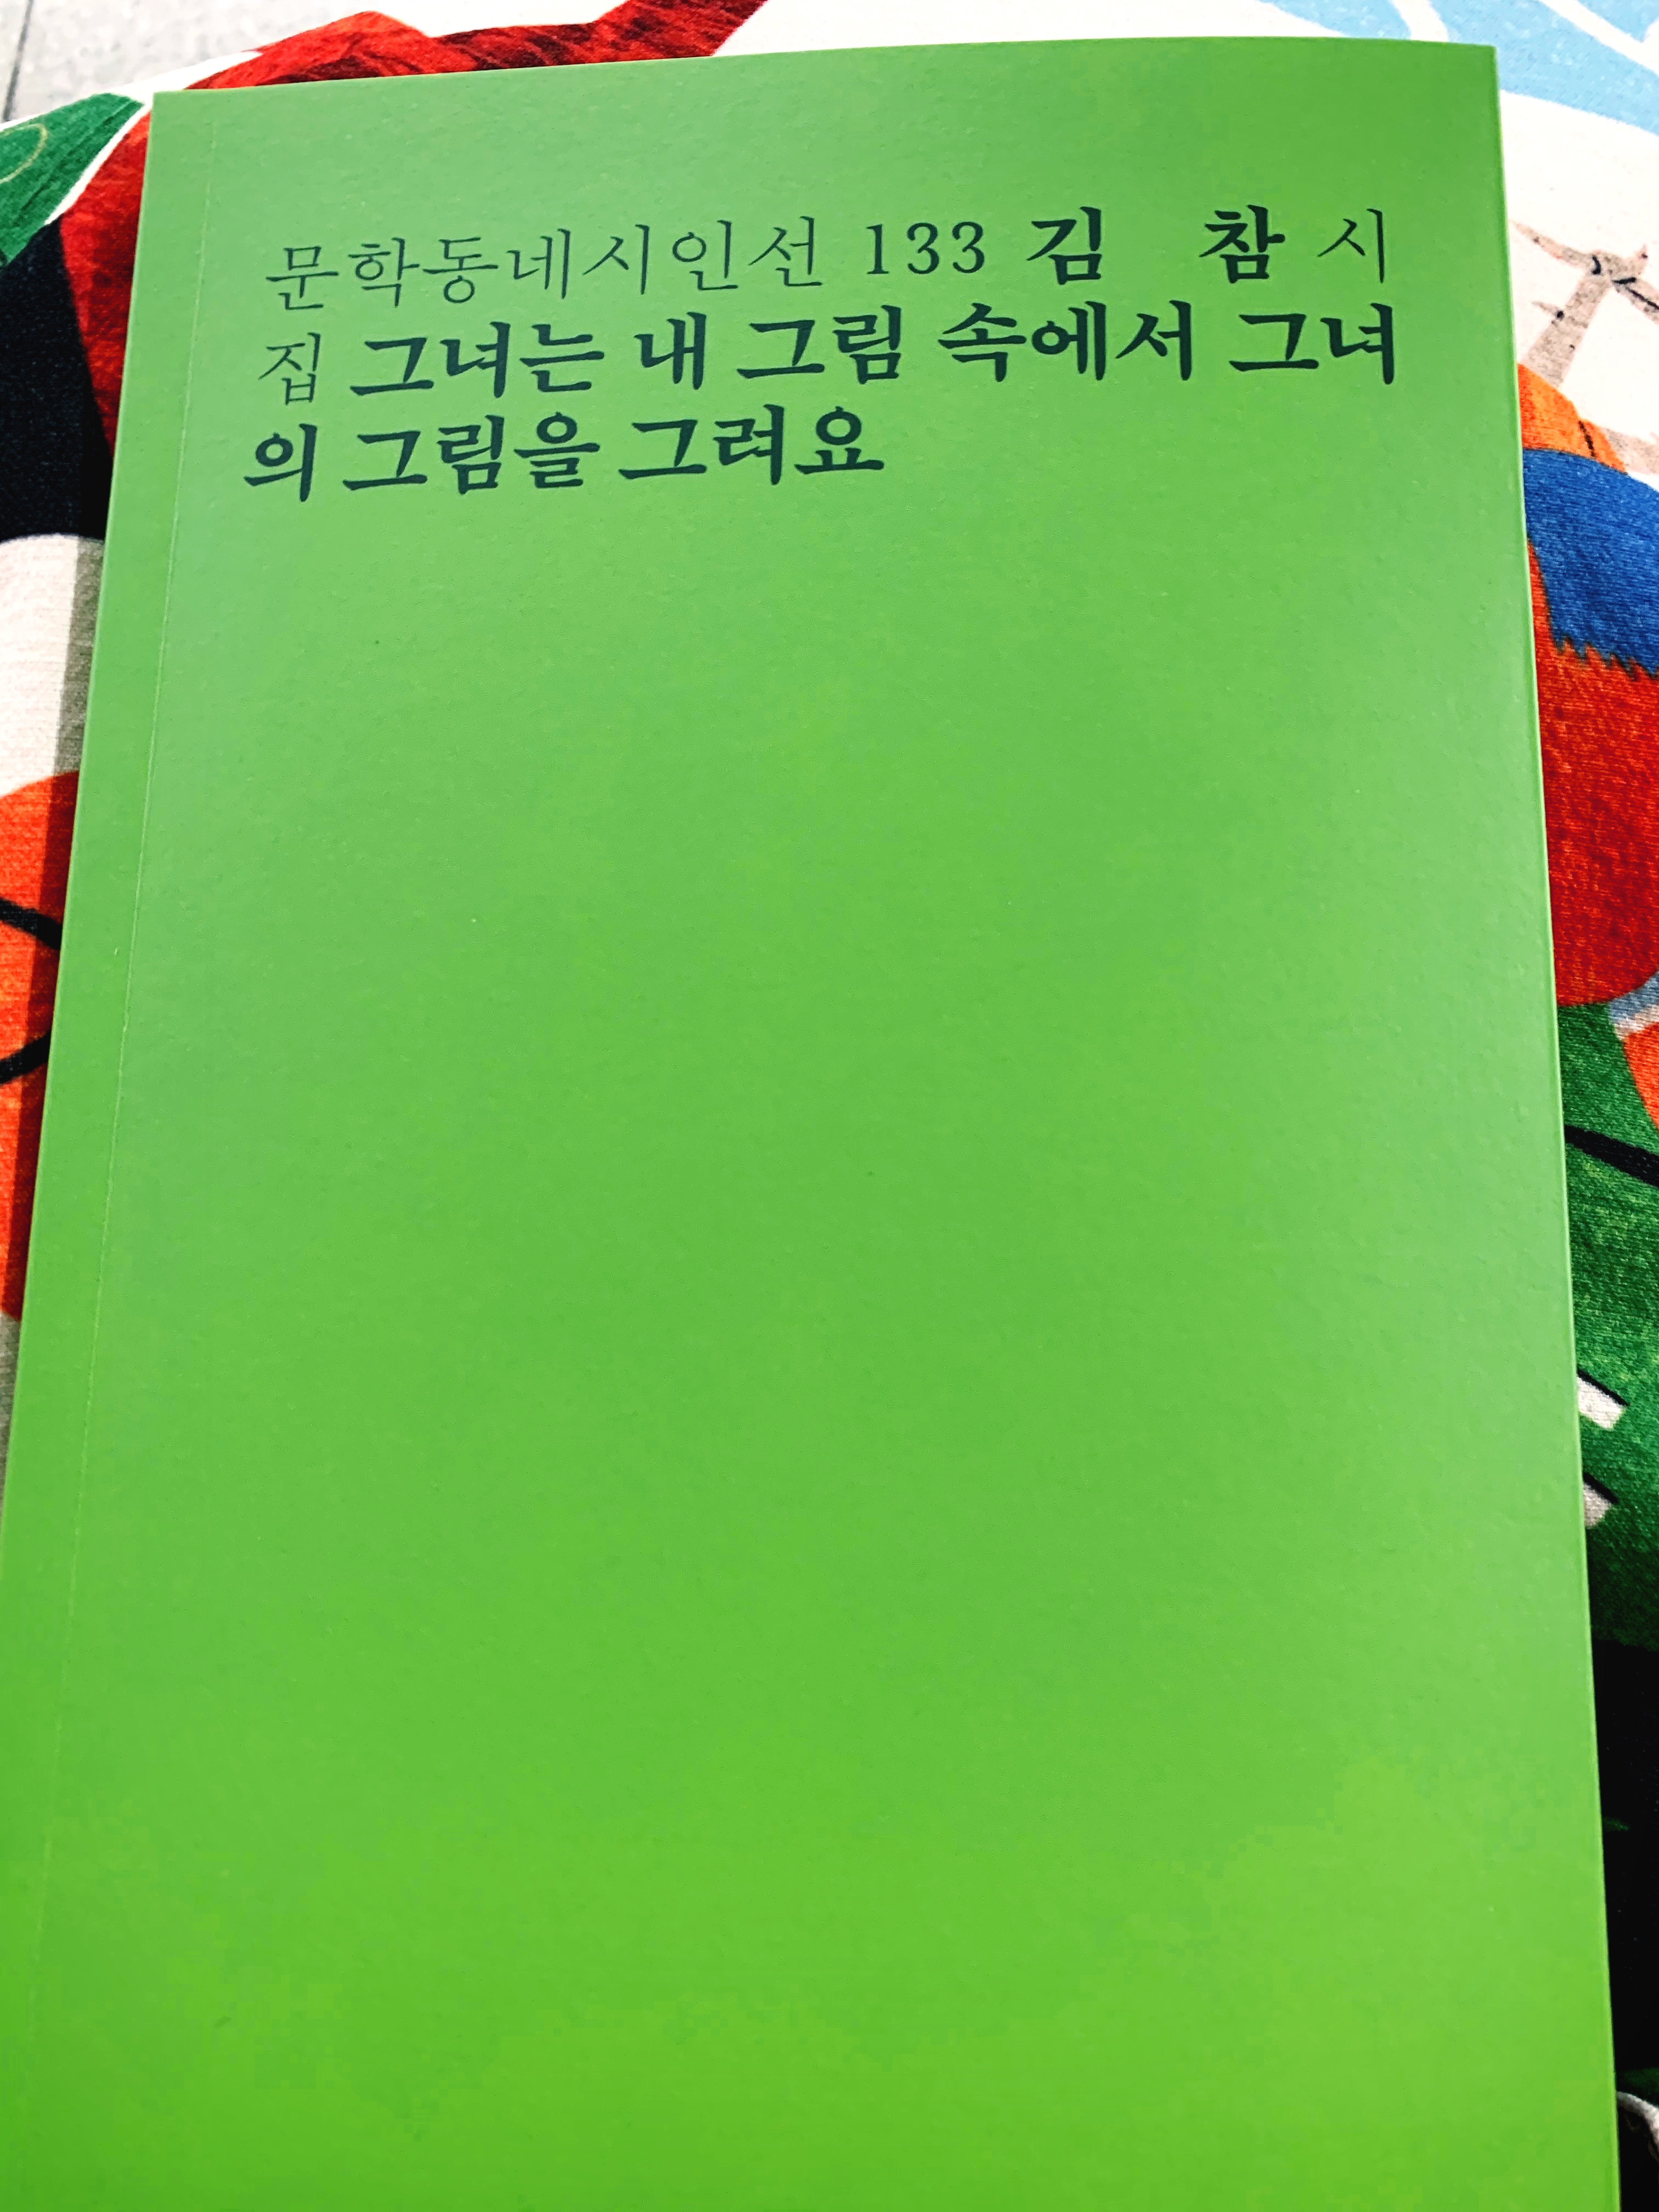 문학동네시인선 133 김 참 시
집 그녀는 내 그림 속에서 그녀
의 그림을 그려요